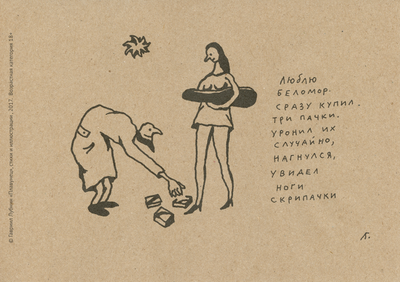 Люблю
беломор.
сразу купил
три пачки.
уронил их
случайно,
нагнулся,
увидел
ноги
скрипачки
© Гавриил Лубнин «Позвонец», стихи и иллюстрации, 2017. Возрастная категория 18+